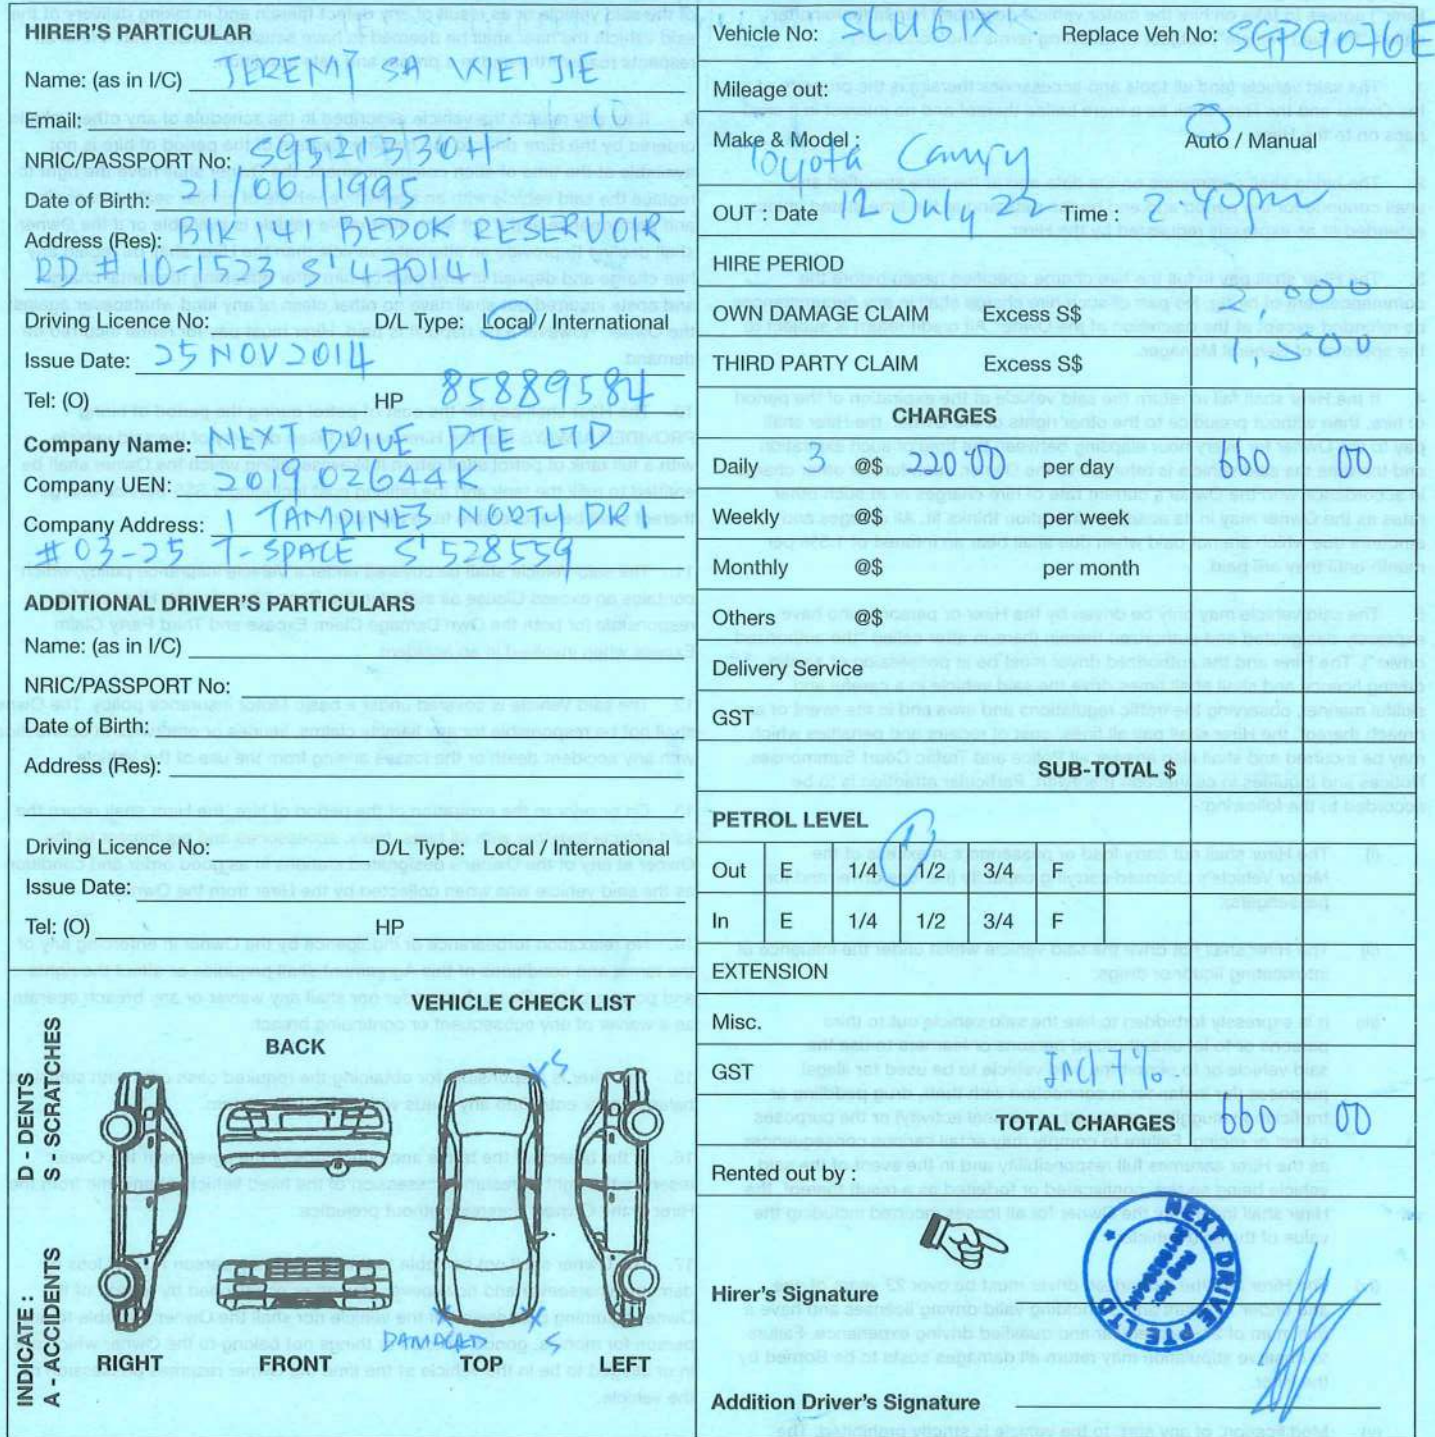 HIRER'S PARTICULAR
Name: (as in I/C) JEREMY SA WEI JIE
Email:
NRIC/PASSPORT No: S9521330H
Date of Birth: 21/06/1995
Address (Res): BLK 141 BEDOK RESERVOIR
RD #10-1523 S'47014
Driving Licence No: D/L Type: Local / International
Issue Date: 25 NOV 2014
Tel: (O) HP 85889584
Company Name: NEXT DRIVE PTE LTD
Company UEN: 201902644K
Company Address: 1 TAMPINES NORTH DR
#03-25 T-SPACE S'528559
ADDITIONAL DRIVER'S PARTICULARS
Name: (as in I/C)
NRIC/PASSPORT No:
Date of Birth:
Address (Res):
Driving Licence No: D/L Type: Local / International
Issue Date:
Tel: (O) HP
VEHICLE CHECK LIST
INDICATE : D - DENTS
A - ACCIDENTS S - SCRATCHES
BACK
XS
X X
DAMAGED S
RIGHT FRONT TOP LEFT
Vehicle No: SLU61X Replace Veh No: SGP9070E
Mileage out:
Make & Model : Toyota Camry Auto / Manual
OUT : Date 12 July 22 Time :
HIRE PERIOD
OWN DAMAGE CLAIM Excess S$
THIRD PARTY CLAIM Excess S$ 1,500
CHARGES
Daily 3 @$ 220 00 per day 660 00
Weekly @$ per week
Monthly @$ per month
Others @$
Delivery Service
GST
SUB-TOTAL $
PETROL LEVEL
Out E 1/4 1/2 3/4 F
In E 1/4 1/2 3/4 F
EXTENSION
Misc.
GST Incl 7%
TOTAL CHARGES 660 00
Rented out by :
NEXT DRIVE PTE LTD
Hirer's Signature
Addition Driver's Signature